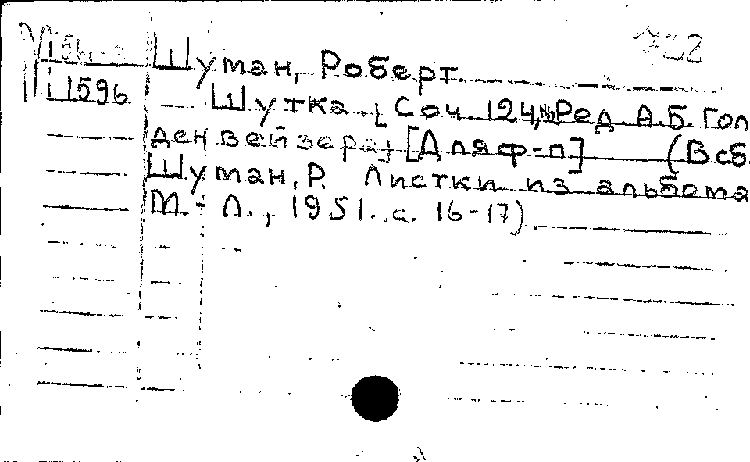 Шуман, Роберт
Ш596
Шутка. [Соч. 124, № Ред. А.Б. Гол
денвейзера] [Для ф-п] (В сб.
Шуман, Р. Листки из альбома
М.-Л., 1951. с. 16-17).